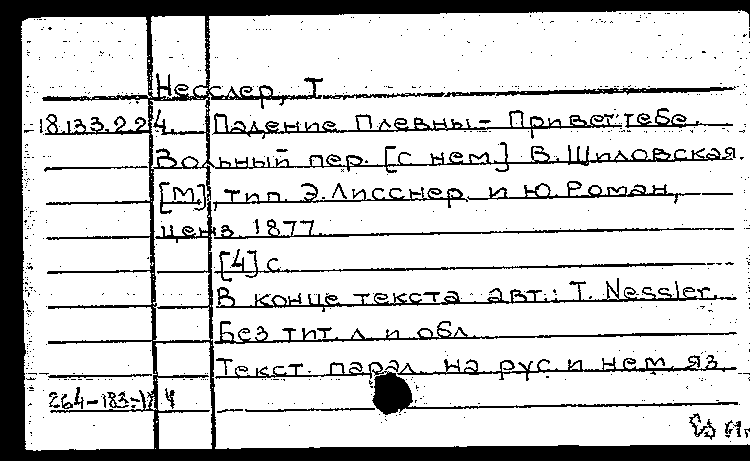 Несслер, Т
18.133.2.24. Падение Плевны - Привет тебе.
Вольный пер. [с нем.] В. Шиловская.
[М.], тип. Э. Лисснер и Ю. Роман,
ценз. 1877.
[4] с.
В конце текста авт.: T. Nessler.
Без тит. л. и обл.
Текст. парал. на рус и нем яз.
264-183-